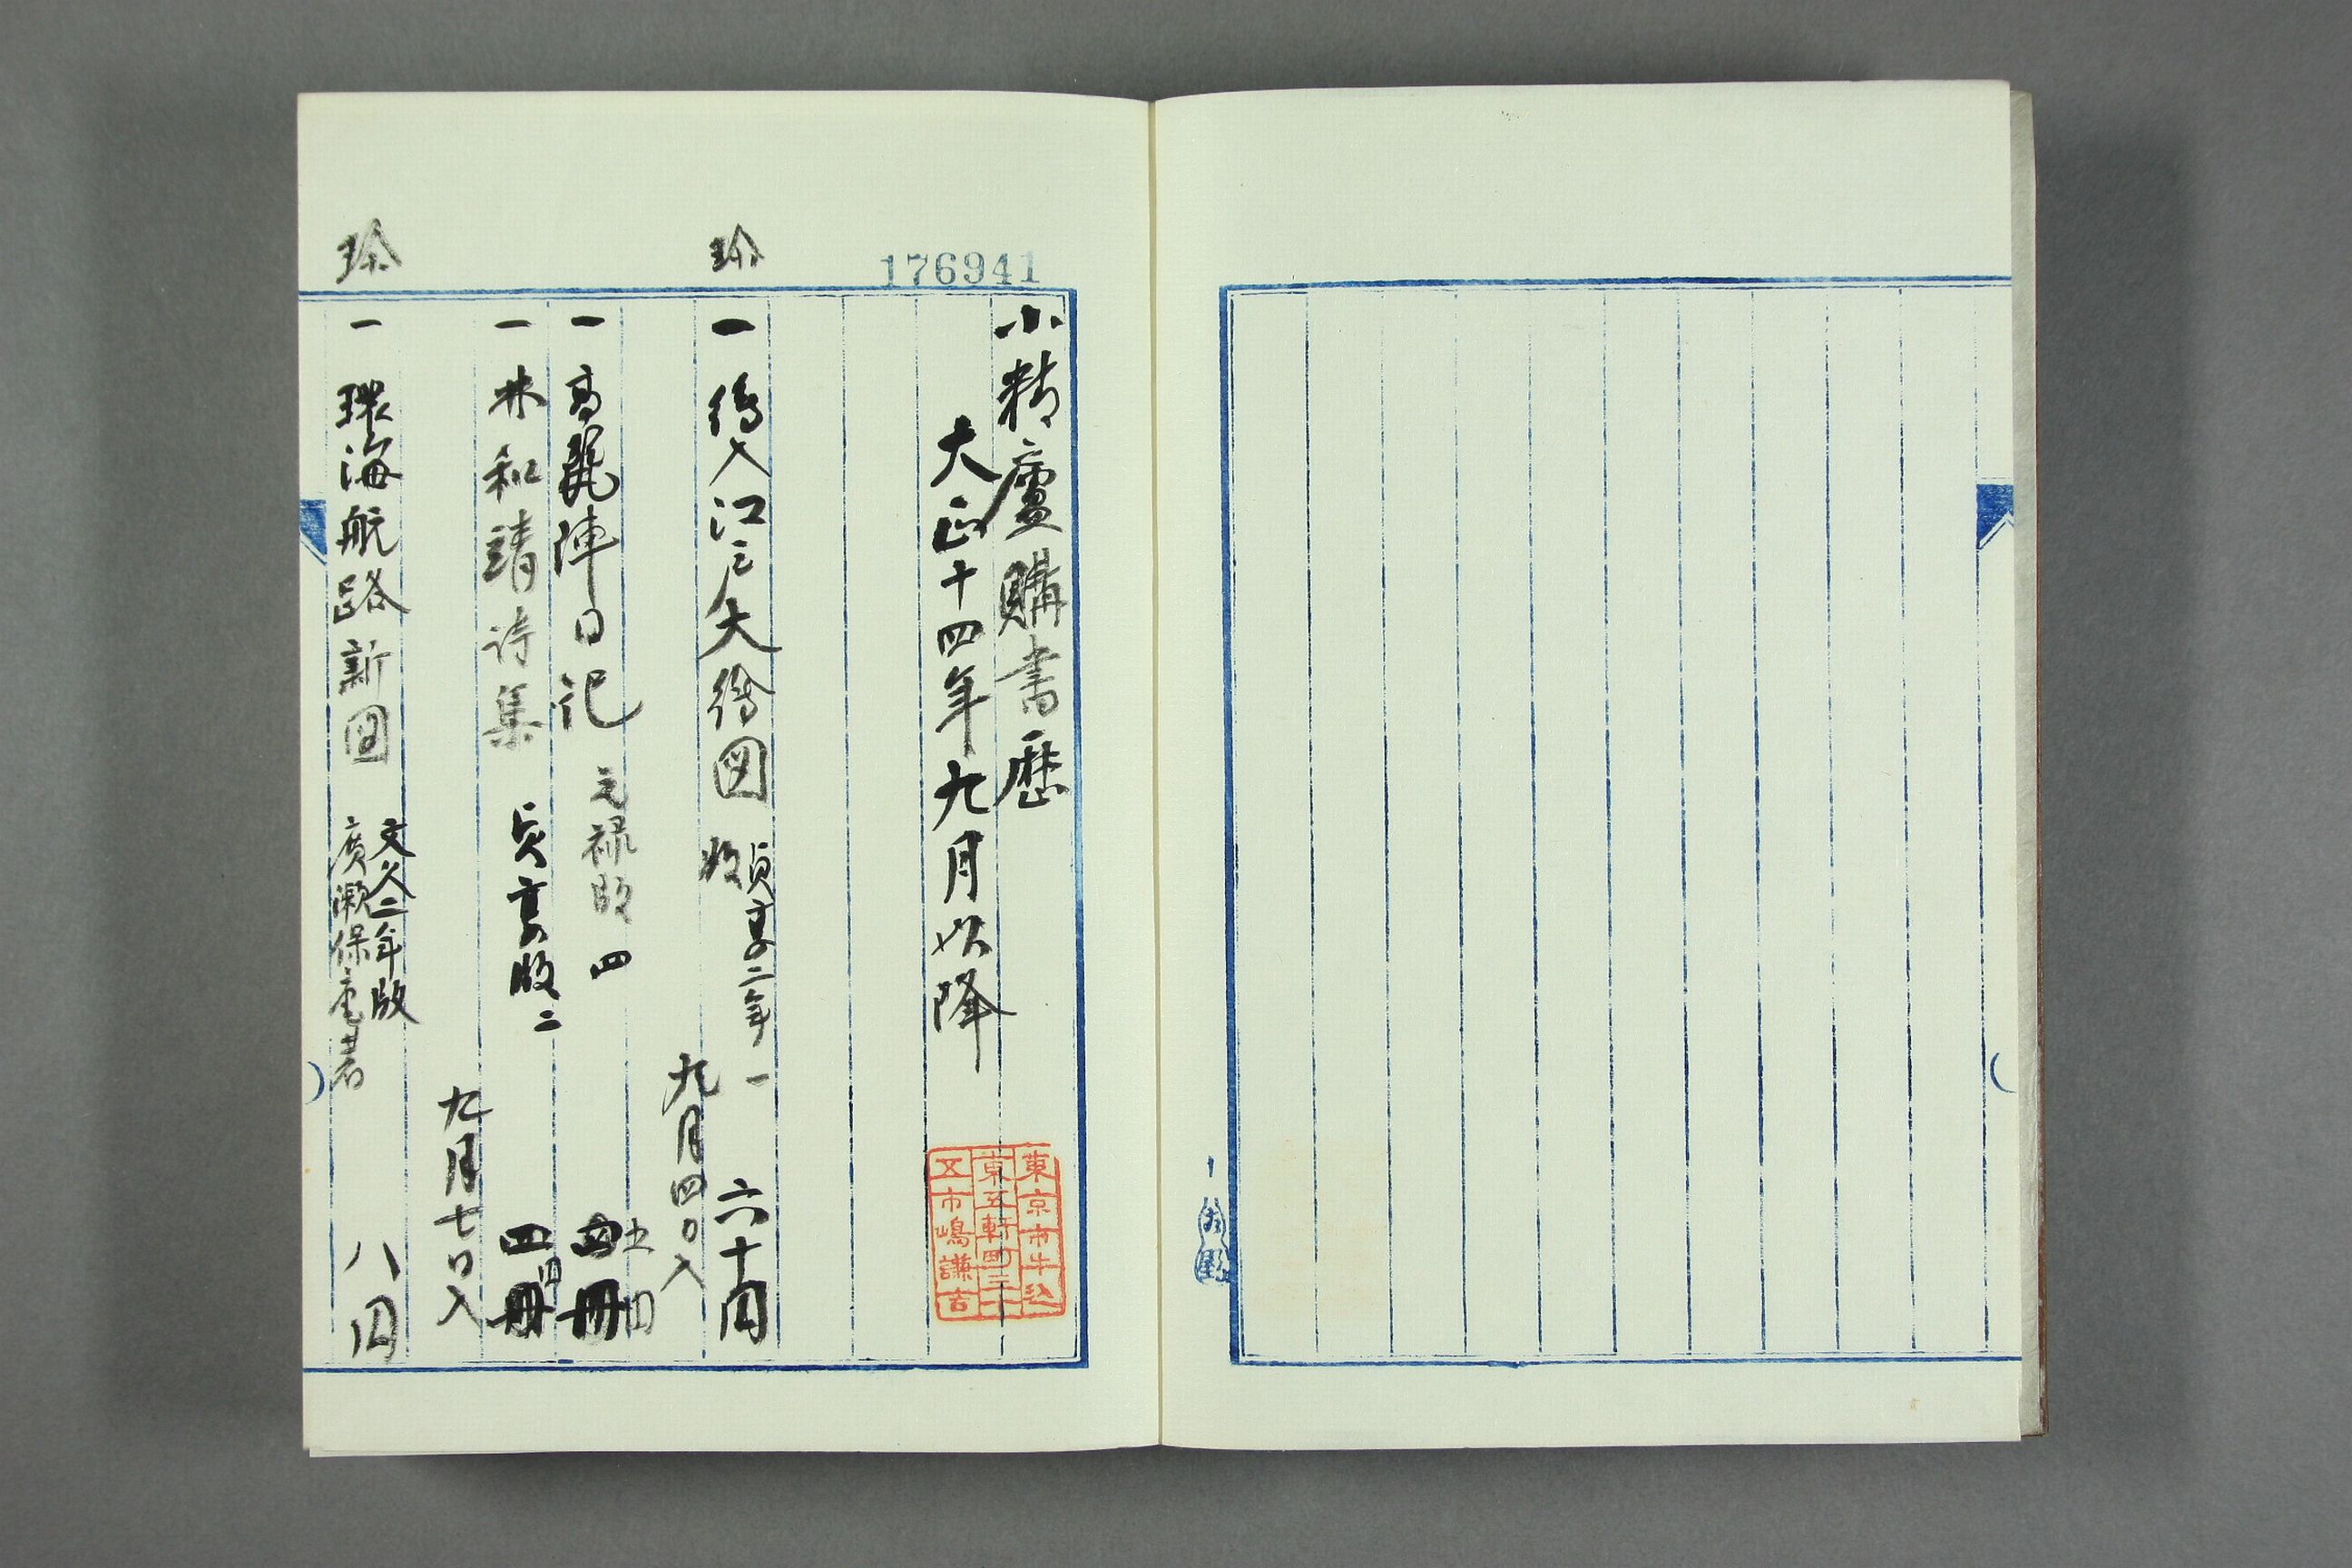 176941
小精廬購書歴
大正十四年九月以降
東京市牛込
東五軒町三十
五市嶋謙吉
珍
一 繪入江戸大繪図 貞享二年
版 一 六十円
九月四日入
一 高麗陣日記 元禄版 四
四冊
一 林和靖詩集 貞享版 二
四冊
九月七日入
珍
一 環海航路新図 文久二年版
廣瀬保庵著
八円